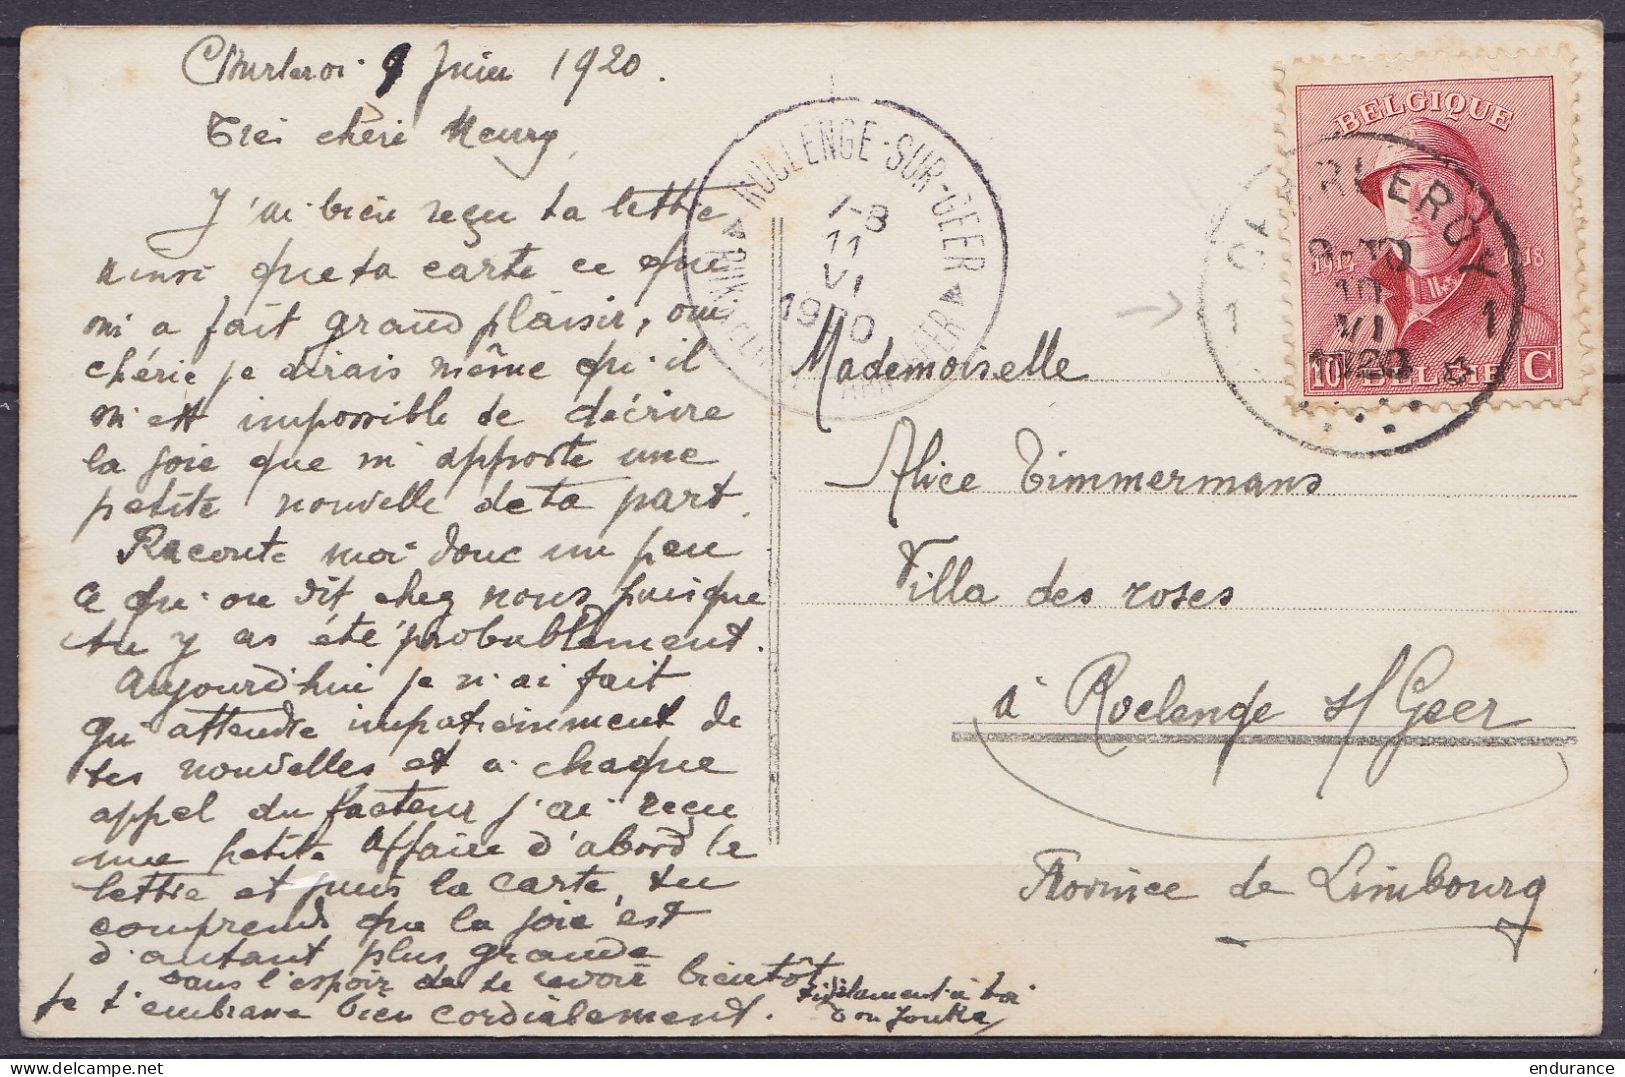 Charleroi 9 Juin 1920.
Très chéri
J'ai bien reçu ta lettre
ainsi que ta carte ce que
m'a fait grand plaisir, oui
chérie je dirais même qu'il
m'est impossible de décrire
la joie que m'apporte une
petite nouvelle de ta part.
Raconte moi donc un peu
ce qu'on dit chez nous puisque
tu y as été probablement.
Aujourd'hui je n'ai fait
qu'attendre impatiemment de
tes nouvelles et à chaque
appel du facteur j'ai reçu
une petite affaire d'abord la
lettre et puis la carte, tu
comprends que la joie est
d'autant plus grande
dans l'espoir de te revoir bientôt
je t'embrasse bien cordialement.
fidèlement à toi
ton
ROCLENGE-SUR-GEER
7-8
11
VI
1920
BELGIQUE
1914 1918
10 BELGIE C
CHARLEROY
1 1
10
VI
1920
Mademoiselle
Alice Timmermans
Villa des roses
à Roclenge s/ Geer
Province de Limbourg
delcampe.net
endurance